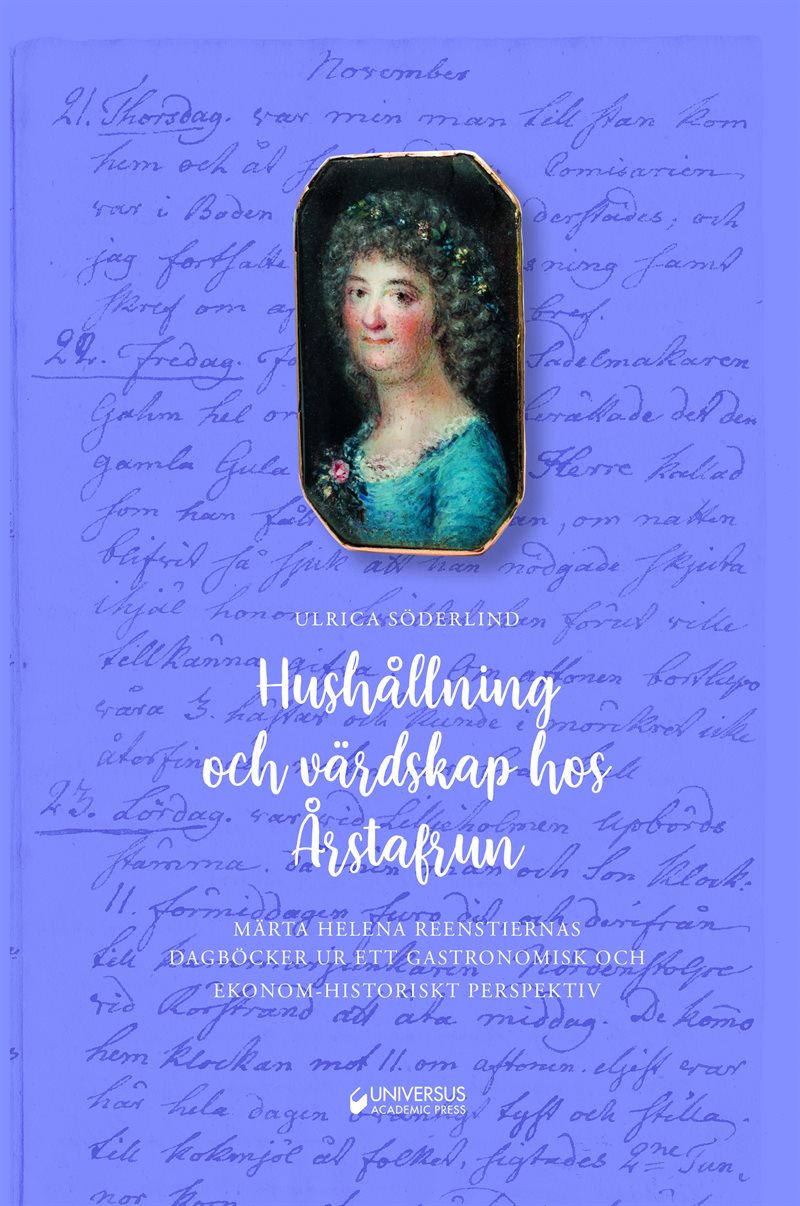 November
21. Thorsdag. var min man till stan kom
hem och åt Comisarien
var i Boden derstädes; och
jag fortsatte sning samt
skref om bref.
22. Fredag. Sadelmakaren
Gahm hel berättade det den
gamla Gula Herre kallad
som han an, om natten
blifvit så sjuk att han nödgade skjuta
ihjäl honom förut ville
tillkänna Om aftonen bortlupo
våra 3. hästar och kunde i mörkret icke
återfin
23. Lördag. var vid Liljeholmen Upbörds
stämma. då min man och Son Klock.
11. förmiddagen furo dit och derifrån
till kammarjunkaren Nordenstolpe
vid Rörstrand att äta middag. De kommo
hem klockan mot 11. om aftonen. eljest var
här hela dagen tyst och stilla.
till kokmjöl åt folket, sigtades 2ne Tun,
nor Korn
ULRICA SÖDERLIND
Hushållning
och värdskap hos
Årstafrun
MÄRTA HELENA REENSTIERNAS
DAGBÖCKER UR ETT GASTRONOMISK OCH
EKONOM-HISTORISKT PERSPEKTIV
UNIVERSUS
ACADEMIC PRESS